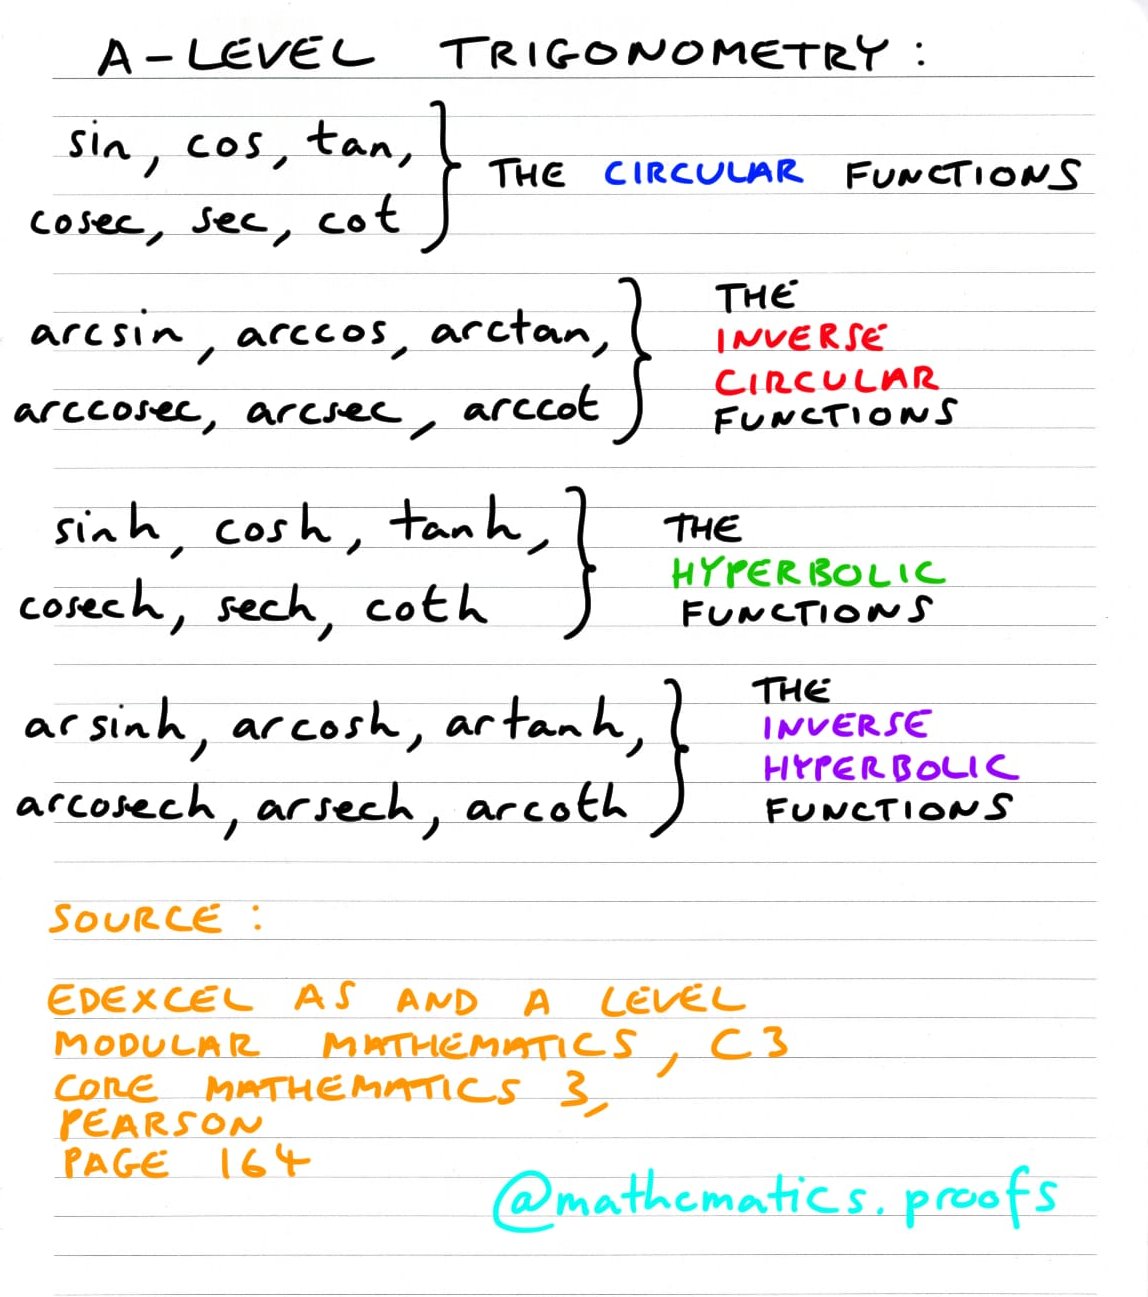 A-LEVEL TRIGONOMETRY:
sin, cos, tan,
cosec, sec, cot
THE CIRCULAR FUNCTIONS
arcsin, arccos, arctan,
arccosec, arcsec, arccot
THE
INVERSE
CIRCULAR
FUNCTIONS
sinh, cosh, tanh,
cosech, sech, coth
THE
HYPERBOLIC
FUNCTIONS
arsinh, arcosh, artanh,
arcosech, arsech, arcoth
THE
INVERSE
HYPERBOLIC
FUNCTIONS
SOURCE:
EDEXCEL AS AND A LEVEL
MODULAR MATHEMATICS, C3
CORE MATHEMATICS 3,
PEARSON
PAGE 164
@mathematics.proofs